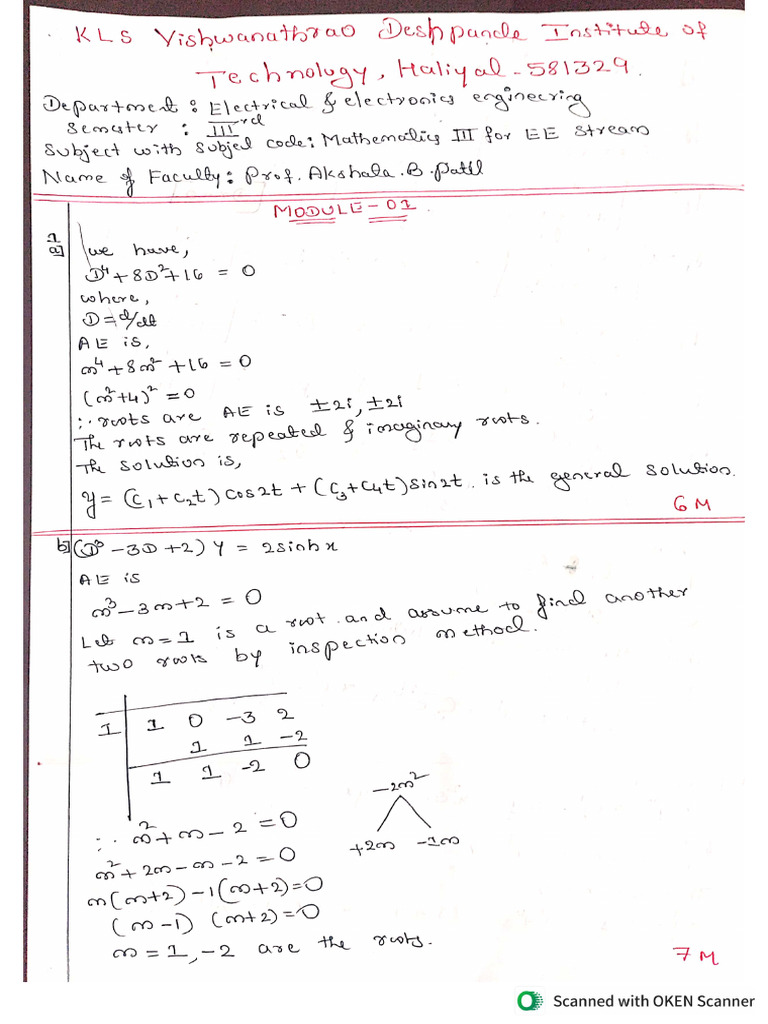 KLS Vishwanathrao Deshpande Institute of
Technology, Haliyal-581329.
Department: Electrical & electronics engineering
Semester : IIIrd
Subject with Subject code: Mathematics III for EE Stream
Name of Faculty: Prof. Akshala.B.Patil
MODULE-01
1
a] we have,
D⁴+8D²+16 = 0
where,
D=d/dt
AE is,
m⁴+8m²+16=0
(m²+4)²=0
∴ roots are AE is ±2i, ±2i
The roots are repeated & imaginary roots.
The solution is,
y= (C₁+C₂t) Cos2t + (C₃+C₄t) sin2t. is the general solution.
6M
b] (D³-3D+2) y = 2sinhx
AE is
m³-3m+2=0
Let m=1 is a root. and assume to find another
two roots by inspection method.
1 | 1 0 -3 2
1 1 -2
1 1 -2 0
-2m²
+2m -1m
∴ m²+m-2=0
m²+2m-m-2=0
m(m+2)-1(m+2)=0
(m-1) (m+2)=0
m=1,-2 are the roots.
7M
Scanned with OKEN Scanner